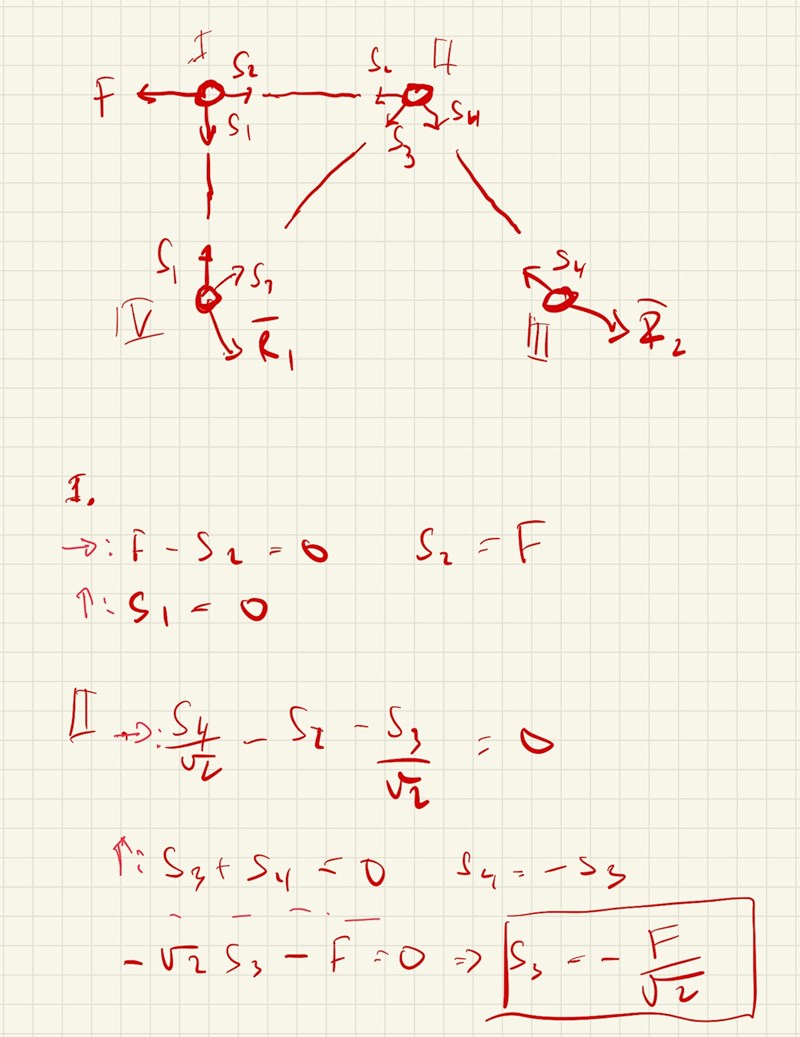 I II
F S₂ S₂ S₄
S₁ S₃
S₁ S₃ S₄
IV R̄₁ III R̄₂
I.
→: F - S₂ = 0 S₂ = F
↑: S₁ = 0
II →: S₄/√2 - S₂ - S₃/√2 = 0
↑: S₃ + S₄ = 0 S₄ = -S₃
- √2 S₃ - F = 0 => S₃ = - F/√2